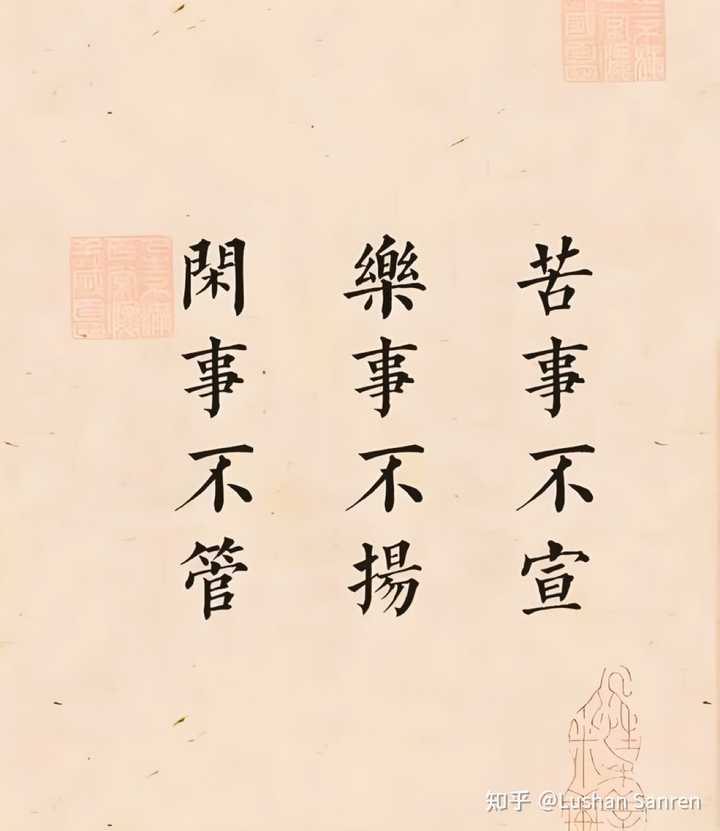 苦事不宣
樂事不揚
閑事不管
知乎 @Lushan Sanren